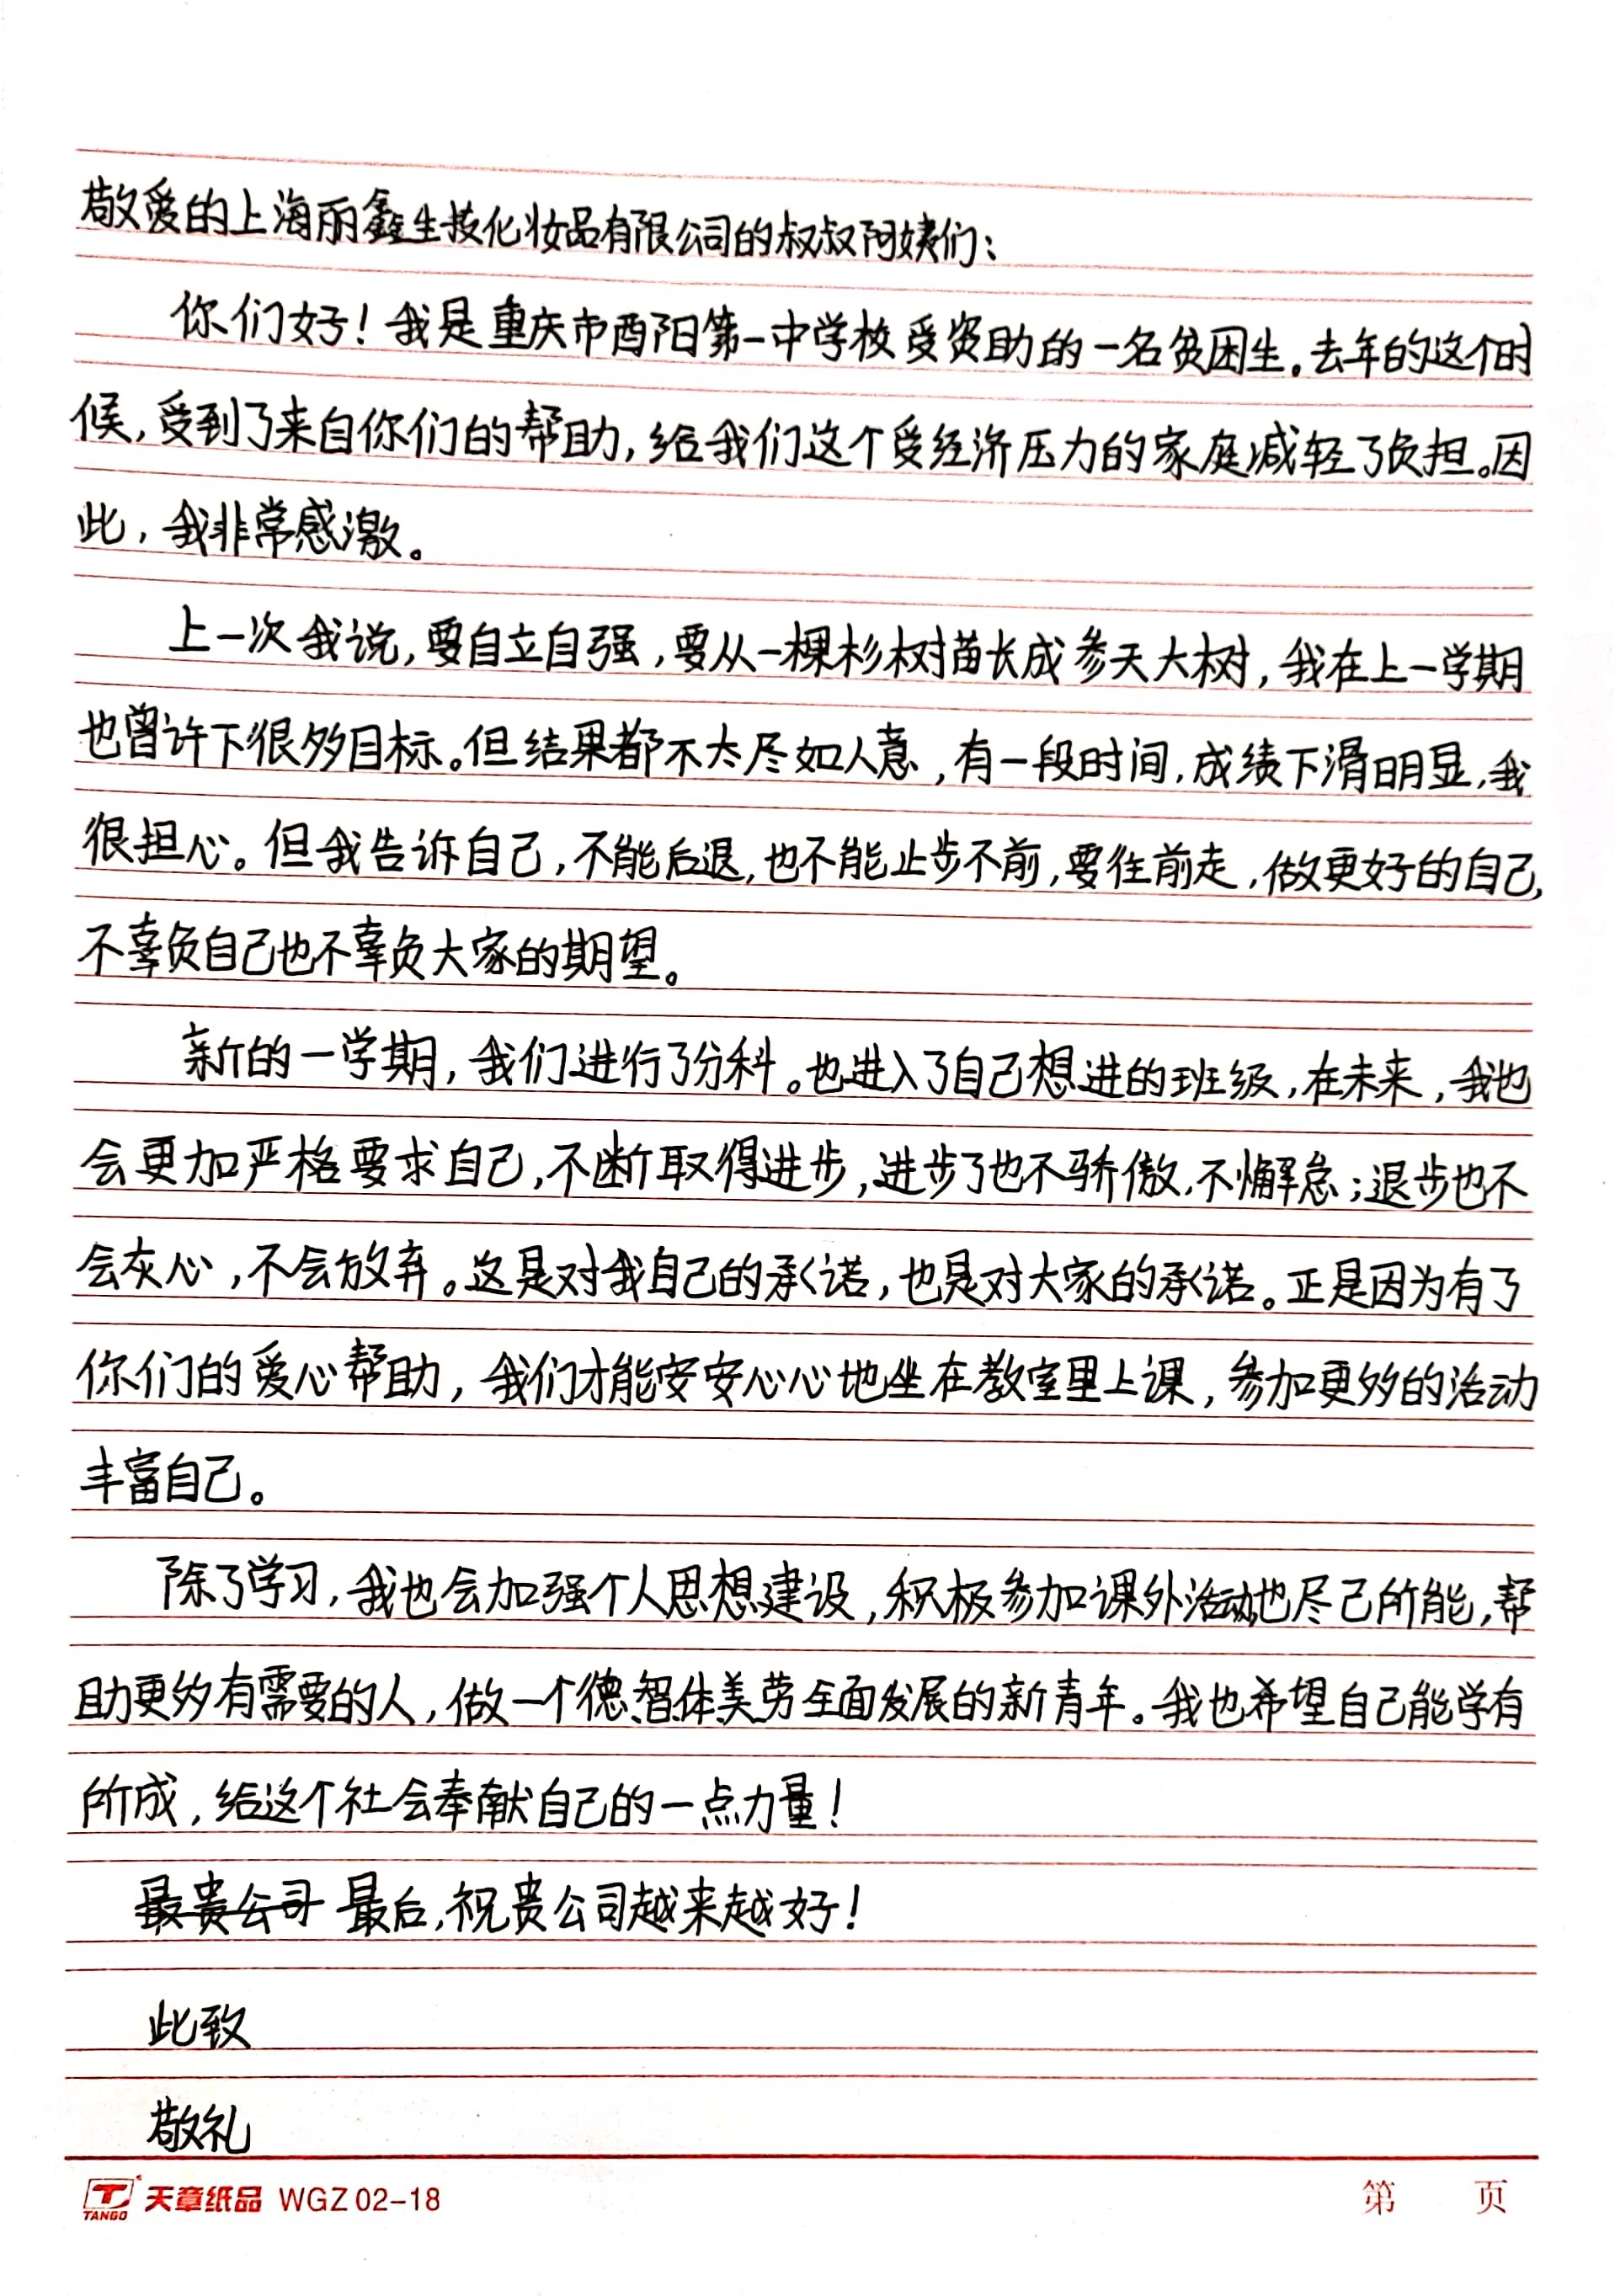 敬爱的上海丽鑫生技化妆品有限公司的叔叔阿姨们：
你们好！我是重庆市酉阳第一中学校受资助的一名贫困生。去年的这个时
候，受到了来自你们的帮助，给我们这个受经济压力的家庭减轻了负担。因
此，我非常感激。
上一次我说，要自立自强，要从一棵杉树苗长成参天大树，我在上一学期
也曾许下很多目标。但结果都不太尽如人意，有一段时间，成绩下滑明显，我
很担心。但我告诉自己，不能后退，也不能止步不前，要往前走，做更好的自己，
不辜负自己也不辜负大家的期望。
新的一学期，我们进行了分科。也进入了自己想进的班级，在未来，我也
会更加严格要求自己，不断取得进步，进步了也不骄傲，不懈怠；退步也不
会灰心，不会放弃。这是对我自己的承诺，也是对大家的承诺。正是因为有了
你们的爱心帮助，我们才能安安心心地坐在教室里上课，参加更多的活动
丰富自己。
除了学习，我也会加强个人思想建设，积极参加课外活动，也尽己所能，帮
助更多有需要的人，做一个德智体美劳全面发展的新青年。我也希望自己能学有
所成，给这个社会奉献自己的一点力量！
最贵公司 最后，祝贵公司越来越好！
此致
敬礼
TANGO 天章纸品 WGZ 02-18 第 页